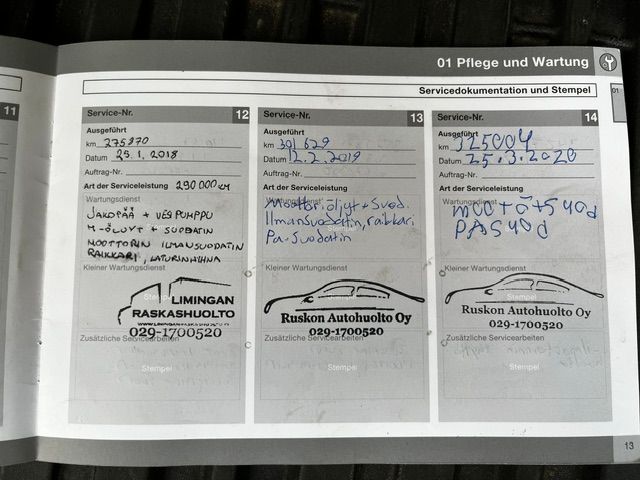 01 Pflege und Wartung
Servicedokumentation und Stempel
01
11
Service-Nr. 12
Ausgeführt
km 275870
Datum 29.1.2018
Auftrag-Nr.
Art der Serviceleistung 290 000 KM
Wartungsdienst
JAKOPÄÄ + VESPUMPPU
M-ÖLJYT + SUODATIN
MOOTTORIN ILMANSUODATIN
RAIKKARI, LATURINHIHNA
Kleiner Wartungsdienst
Stempel
LIMINGAN
RASKASHUOLTO
029-1700520
Zusätzliche Servicearbeiten
Stempel
Service-Nr. 13
Ausgeführt
km 301629
Datum 12.2.2019
Auftrag-Nr.
Art der Serviceleistung
Wartungsdienst
Moottoriöljyt + Suod.
Ilmansuodatin, raikkari
Pa-Suodatin
Kleiner Wartungsdienst
Stempel
Ruskon Autohuolto Oy
029-1700520
Zusätzliche Servicearbeiten
Stempel
Service-Nr. 14
Ausgeführt
km 325004
Datum 25.3.2020
Auftrag-Nr.
Art der Serviceleistung
Wartungsdienst
Kleiner Wartungsdienst
Stempel
Ruskon Autohuolto Oy
029-1700520
Zusätzliche Servicearbeiten
Stempel
13